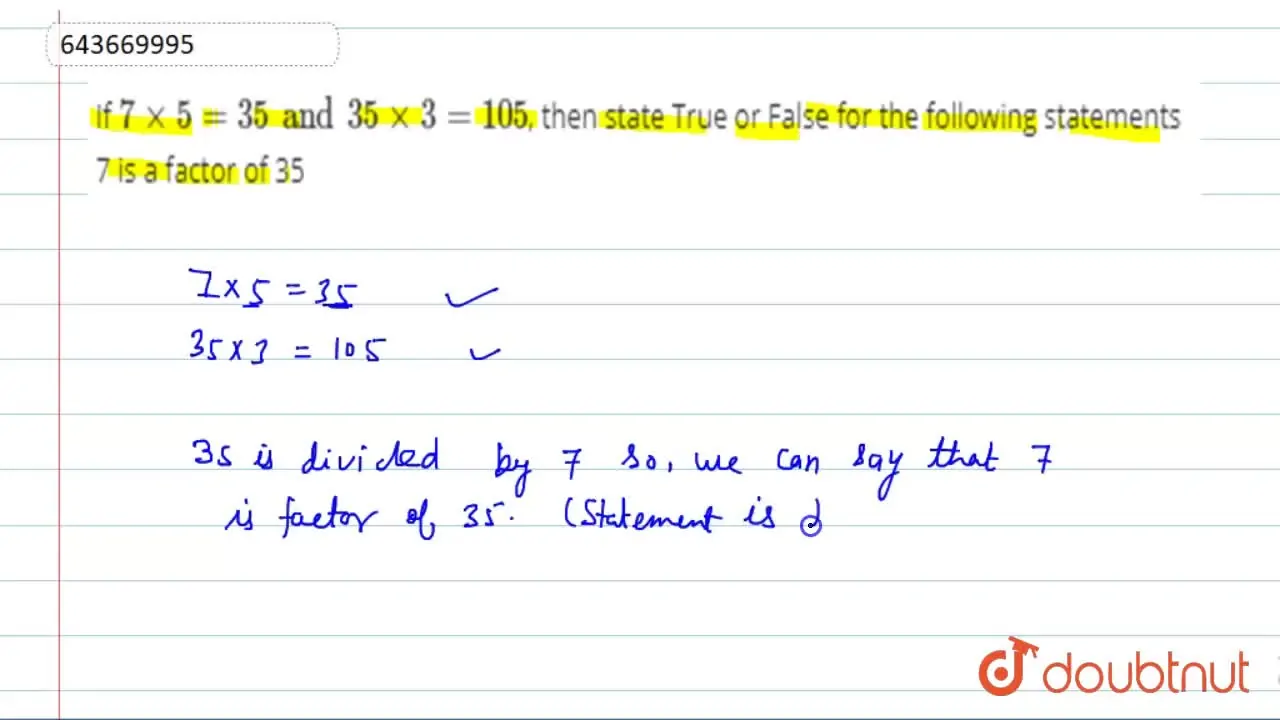 643669995
If 7 × 5 = 35 and 35 × 3 = 105, then state True or False for the following statements
7 is a factor of 35
7 × 5 = 35 ✓
35 × 3 = 105 ✓
35 is divided by 7 so, we can say that 7
is factor of 35. (Statement is
doubtnut